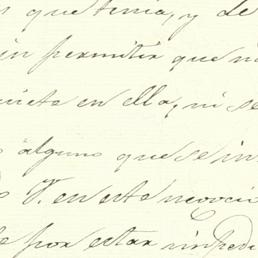 que tenia, y de
permitir que
en ella, ni se
alguno que se in
V. en este negoci
por estar impedi